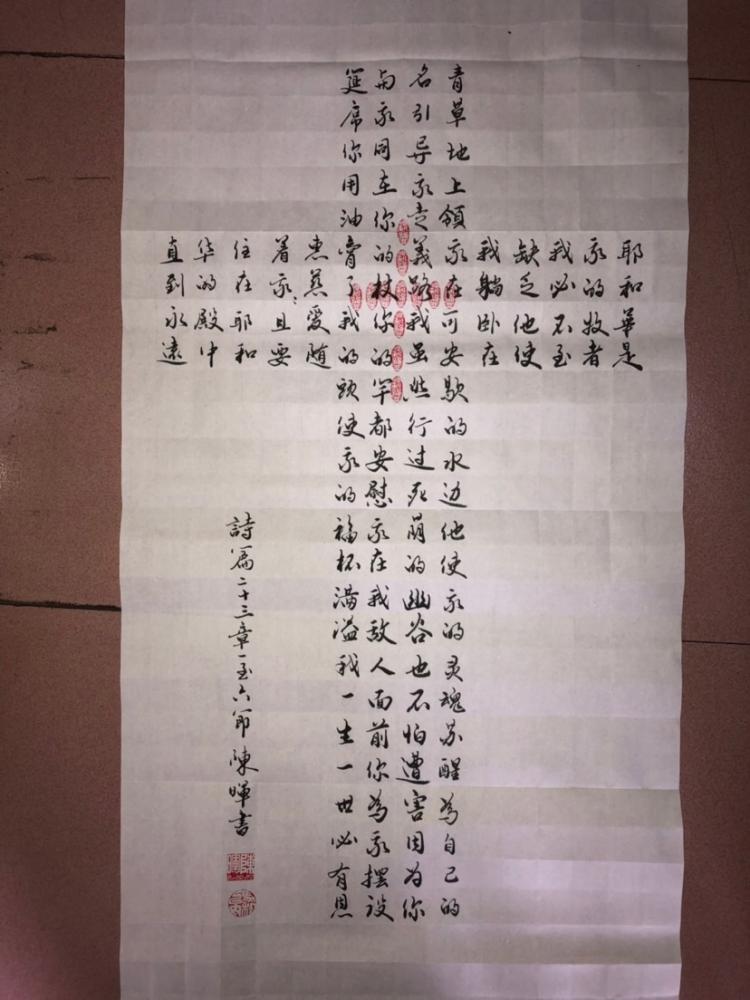 耶和華是
我的牧者
我必不至
缺乏他使
我躺卧在
青草地上領我在可安歇的水边他使我的灵魂苏醒為自己的
名引导我走義路我虽然行过死荫的幽谷也不怕遭害因为你
与我同在你的杖你的竿都安慰我在我敌人面前你為我摆设
筵席你用油膏了我的頭使我的福杯满溢我一生一世必有恩
惠慈爱随
着我且要
住在耶和
华的殿中
直到永遠
詩篇二十三章一至六節陳暉書